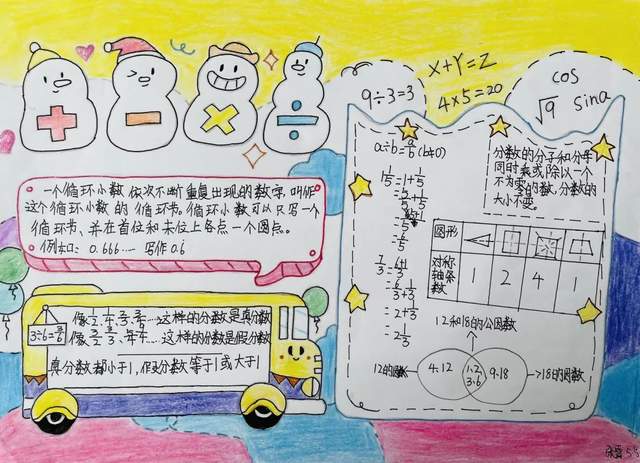 + - × ÷
9÷3=3
X+Y=Z
4×5=20
cos
√9 sina
一个循环小数依次不断重复出现的数字,叫作
这个循环小数的循环节。循环小数可以只写一个
循环节、并在首位和末位上各点一个圆点。
0.666…… 写作
3÷6=3/6
这样的分数是真分数
这样的分数是假分数
真分数都小于1,假分数等于1或大于1
a÷b=a/b(b≠0)
1 1/5=1+1/5
=5/5+1/5
=5+1/5
=6/5
7/3=6+1/3
=6/3+1/3
=2+1/3
=2 1/3
分数的分子和分母
同时乘或除以一个
不为
零的数,分数的
大小不变。
图形
对称轴条数 1 2 4 1
12和18的公因数
12的因数 4.12 1.2 9.18 18的因数
3.6